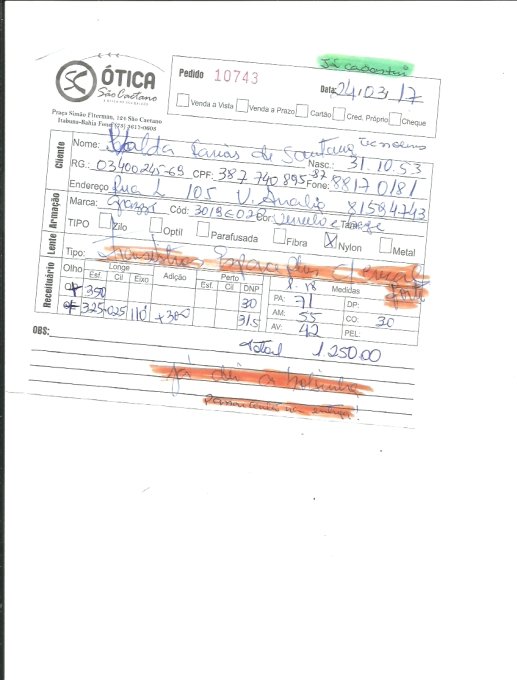 Já cadastrei
ÓTICA
São Caetano
Pedido 10743
Data: 24/03/17
Venda a Vista Venda a Prazo Cartão Cred. Próprio Cheque
Praça Simão Fiterman, 126 São Caetano
Itabuna-Bahia Fone: (73) 3617-0608
Cliente
Nome: de Santana Nasc.: 31.10.53
RG.: 03400245-69 CPF: 387 740 895 87 Fone: 88170181
Endereço Rua L 105 V. Anália 81584743
Armação
Marca: Grazzi Cód: Cor: Tam:
TIPO Zilo Optil Parafusada Fibra X Nylon Metal
Lente
Tipo:
Receituário
Olho Longe Adição Perto DNP Medidas
Esf. Cil Eixo Esf. Cil
350 30 PA: 71 DP:
325 025 110 +300 31.5 AM: 55 CO: 30
AV: 42 PEL:
OBS: total 1.250.00
já dei a